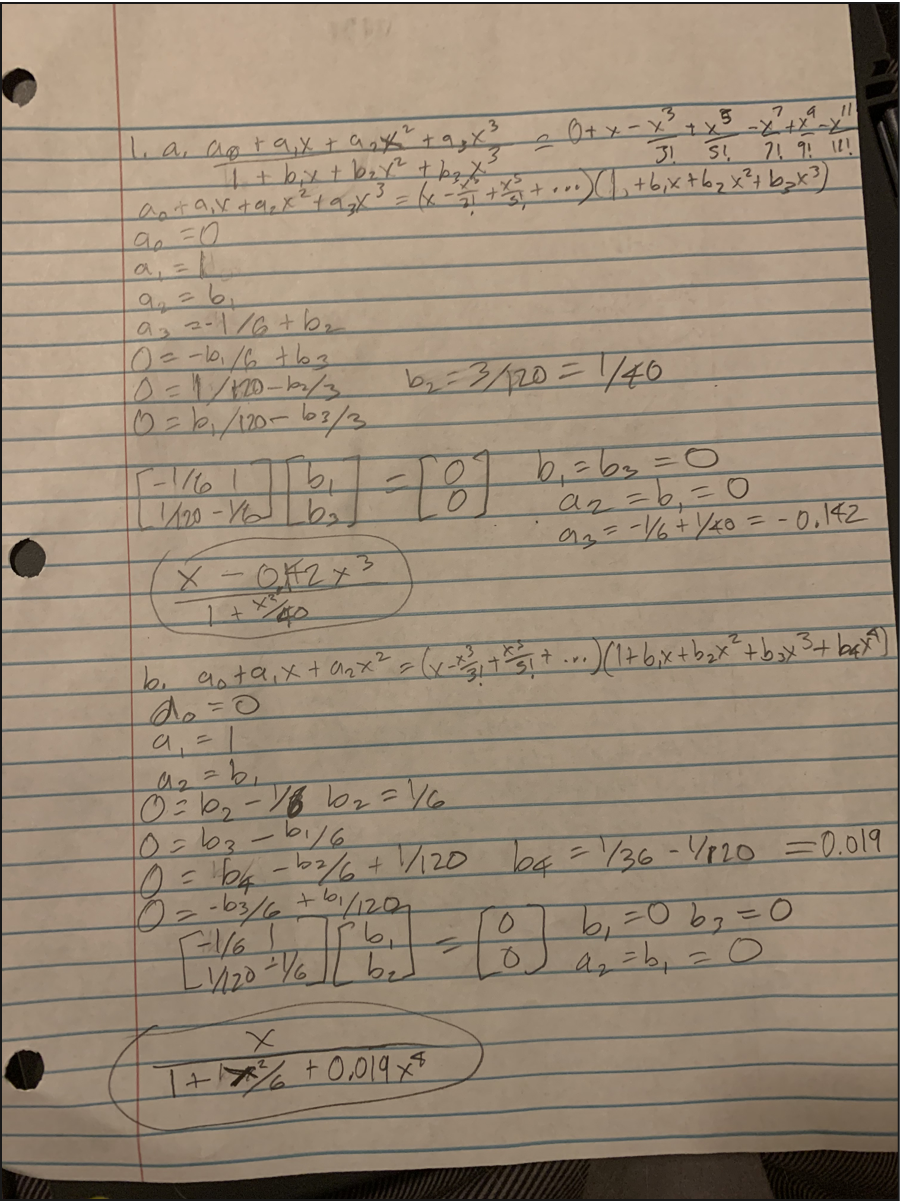 1. a. (a₀ + a₁x + a₂x² + a₃x³)/(1 + b₁x + b₂x² + b₃x³) = 0 + x - x³/3! + x⁵/5! - x⁷/7! + x⁹/9! - x¹¹/11!
a₀ + a₁x + a₂x² + a₃x³ = (x - x³/3! + x⁵/5! + ...)(1 + b₁x + b₂x² + b₃x³)
a₀ = 0
a₁ = 1
a₂ = b₁
a₃ = -1/6 + b₂
0 = -b₁/6 + b₃
0 = 1/120 - b₂/3 b₂ = 3/120 = 1/40
0 = b₁/120 - b₃/3
[-1/6 1; 1/120 -1/6] [b₁; b₃] = [0; 0] b₁ = b₃ = 0
a₂ = b₁ = 0
a₃ = -1/6 + 1/40 = -0.142
(x - 0.142x³)/(1 + x²/40)
b. a₀ + a₁x + a₂x² = (x - x³/3! + x⁵/5! + ...)(1 + b₁x + b₂x² + b₃x³ + b₄x⁴)
a₀ = 0
a₁ = 1
a₂ = b₁
0 = b₂ - 1/6 b₂ = 1/6
0 = b₃ - b₁/6
0 = b₄ - b₂/6 + 1/120 b₄ = 1/36 - 1/120 = 0.019
0 = -b₃/6 + b₁/120
[-1/6 1; 1/120 -1/6] [b₁; b₂] = [0; 0] b₁ = 0 b₃ = 0
a₂ = b₁ = 0
x/(1 + x²/6 + 0.019x⁴)